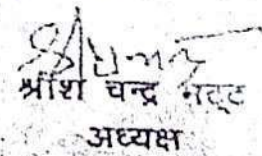 श्रीश चन्द्र भट्ट
अध्यक्ष